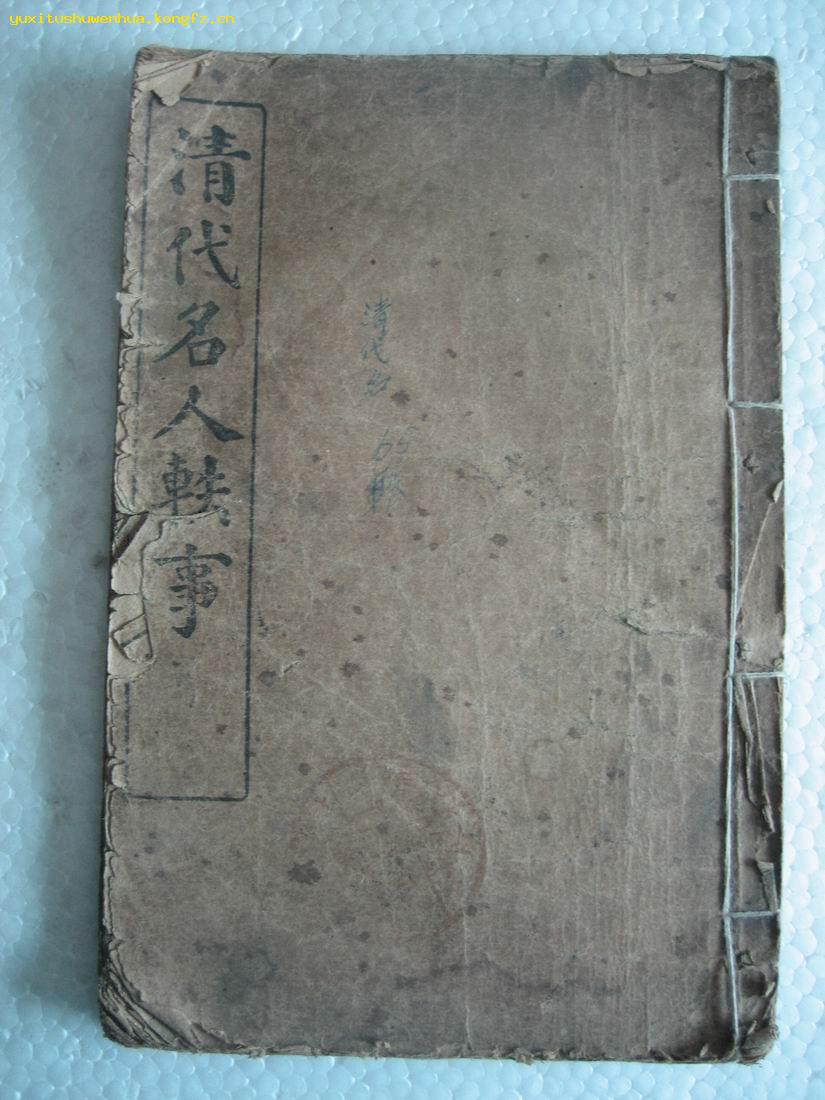 yuxitushuwenhua.kongfz.cn
清代名人軼事
清代名